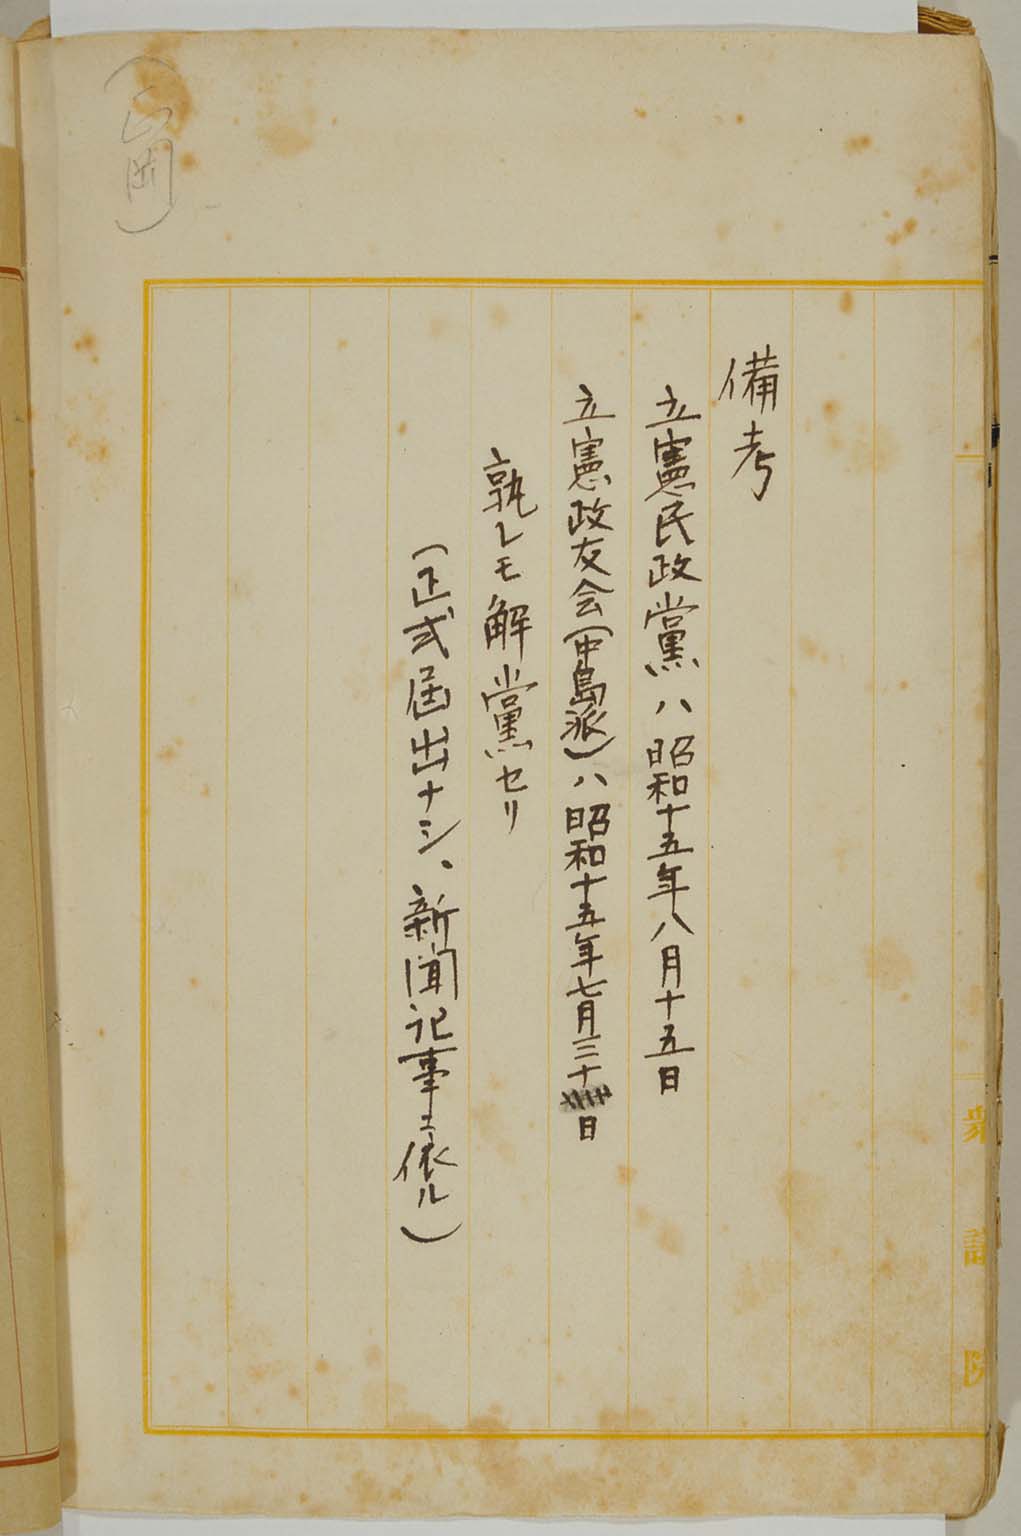 備考
立憲民政黨ハ昭和十五年八月十五日
立憲政友会(中島派)ハ昭和十五年七月三十日
孰レモ解黨セリ
(正式届出ナシ、新聞記事ニ依ル)
衆議院